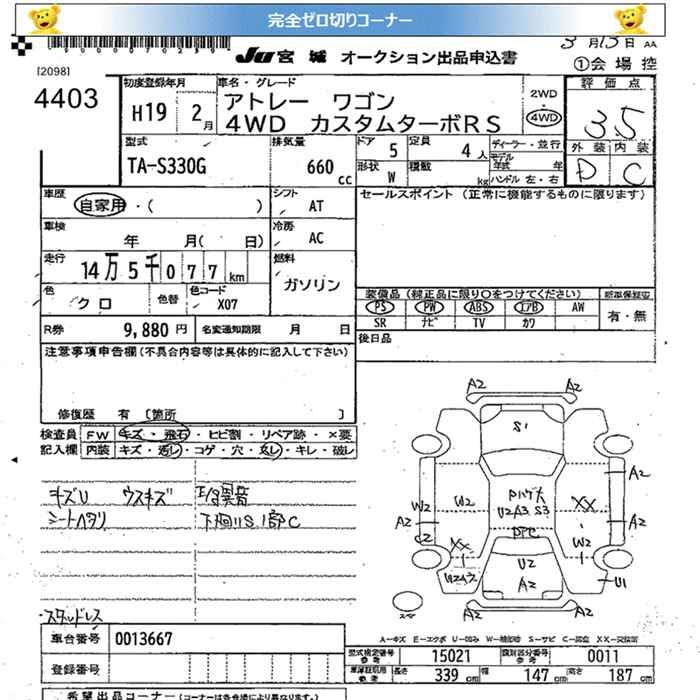 完全ゼロ切りコーナー
JU 宮城 オークション出品申込書
3月15日 AA
[2098]
①会場控
4403
初度登録年月
H19 2月
車名・グレード
アトレー ワゴン
4WD カスタムターボRS
2WD
4WD
評価点
3.5
外装 内装
D C
型式
TA-S330G
排気量
660 cc
ドア 5
定員 4人
ディーラー・並行
モデル年式 年
形状 W
積載 kg
ハンドル 左・右
車歴
自家用・( )
シフト
AT
セールスポイント (正常に機能するものに限ります)
車検
年 月( 日)
冷房
AC
走行
14万5千077km
燃料
ガソリン
色
クロ
色替
色コード
X07
装備品 (純正品に限り○をつけてください)
新車保証書
PS PW ABS エアB AW
有・無
SR ナビ TV カワ
R券 9,880円
名変通知期限 月 日
後日品
注意事項申告欄 (不具合内容等は具体的に記入して下さい)
修復歴 有 [箇所 ]
検査員 FW キズ・飛石・ヒビ割・リペア跡・×要
記入欄 内装 キズ・汚レ・コゲ・穴・スレ・キレ・破レ
キズU ウスキズ
シートヘタリ
下廻りS 1部C
スタッドレス
A2 A2
S'
A2
W2 W2 XX
U2A3 S3
A2 A2
C2 XX W2
U2
U2A3 A2 U1
A2 A2
A-キズ E-エクボ U-凹み W-補修跡 S-サビ C-腐食 XX-交換済
車台番号 0013667
登録番号
型式指定番号 参考 15021
類別区分番号 参考 0011
車庫証明用 参考 長さ 339cm 幅 147cm 高さ 187cm
希望出品コーナー (コーナーは各会場により異なります)